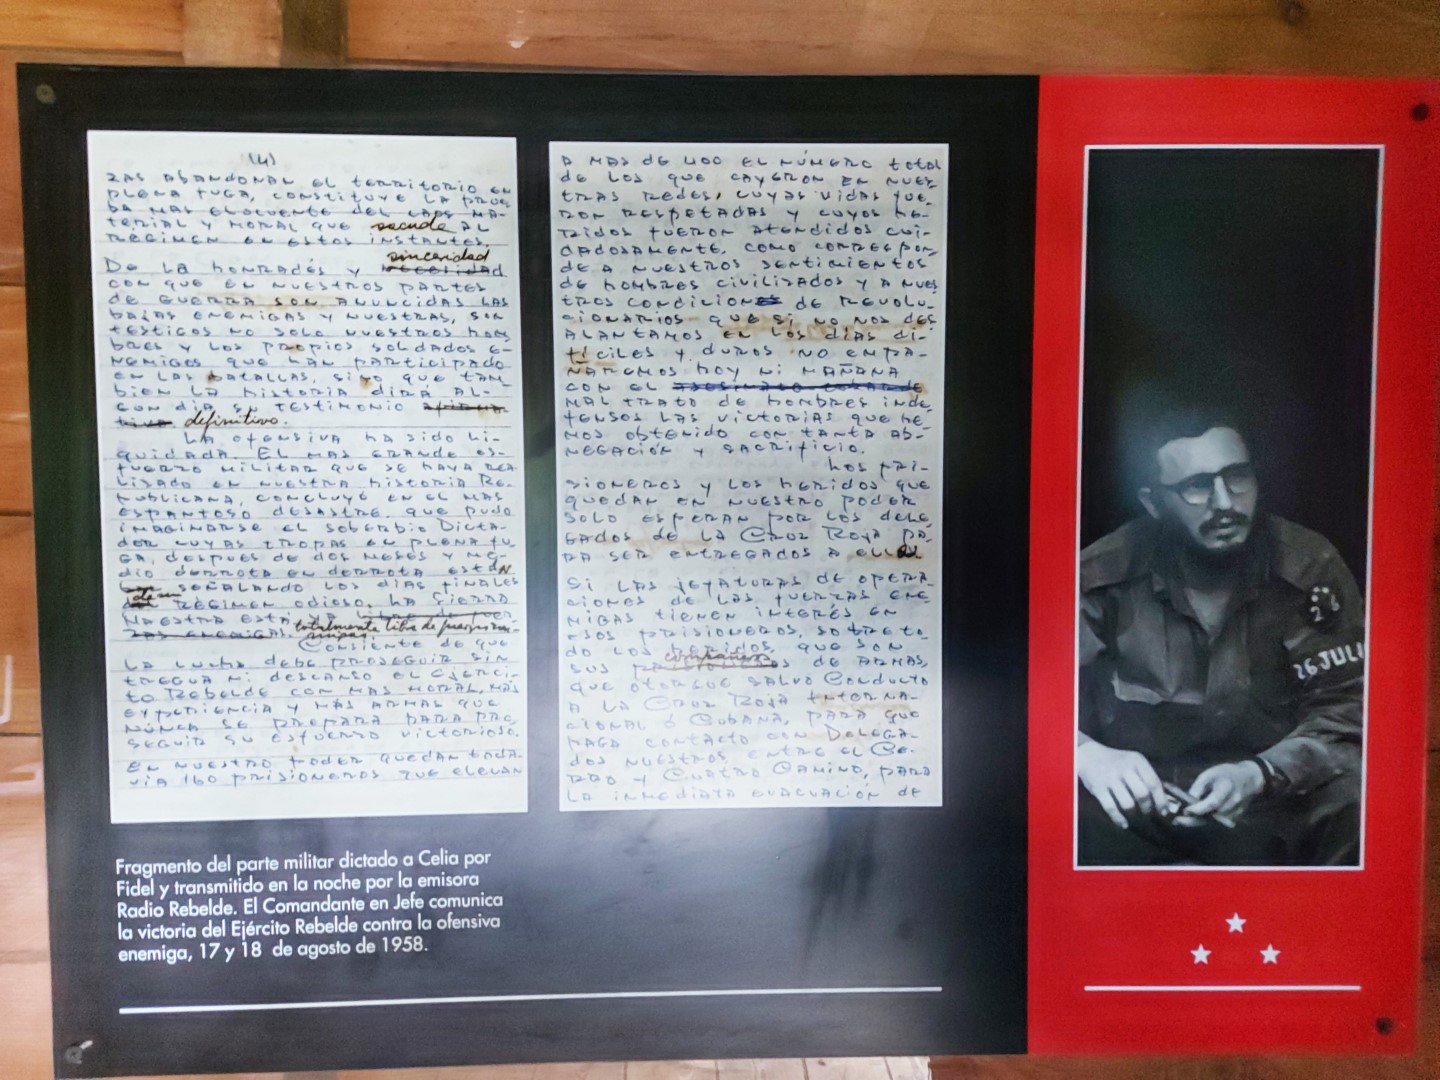 (4)
ZAS ABANDONAR EL TERRITORIO EN
PLENA FUGA, CONSTITUYE LA PRUE
BA MAS ELOCUENTE DEL CAOS MA-
TERIAL Y MORAL QUE sacude AL
RÉGIMEN EN ESTOS INSTANTES.
sinceridad
DE LA HONRADÉS Y
CON QUE EN NUESTROS PARTES
DE GUERRA SON ANUNCIDAS LAS
BAJAS ENEMIGAS Y NUESTRAS, SON
TESTIGOS NO SOLO NUESTROS HOM
BRES Y LOS PROPIOS SOLDADOS E-
NEMIGOS QUE HAN PARTICIPADO
EN LAS BATALLAS, SINO QUE TAM_
BIEN LA HISTORIA DIRÁ AL-
GÚN DÍA SU TESTIMONIO
definitivo.
LA OFENSIVA HA SIDO LI-
QUIDADA. EL MAS GRANDE ES-
FUERZO MILITAR QUE SE HAYA REA
LISADO EN NUESTRA HISTORIA RE-
PUBLICANA, CONCLUYÓ EN EL MAS
ESPANTOSO DESASTRE QUE PUDO
IMAGINARSE EL SOBERBIO DICTA-
DOR CUYAS TROPAS EN PLENA FU
GA, DESPUES DE DOS MESES Y ME-
DIO DERROTA EN DERROTA ESTÁN
SEÑALANDO LOS DIAS FINALES
de su RÉGIMEN ODIOSO. LA SIERRA
MAESTRA ESTÁ LIBRE DE FUER-
ZAS ENEMIGAS. totalmente libre de fuerzas
CONSIENTE DE QUE
LA LUCHA DEBE PROSEGUIR SIN
TREGUA NI DESCANSO EL EJERCI-
TO REBELDE CON MAS MORAL, MÁS
EXPERIENCIA Y MÁS ARMAS QUE
NUNCA SE PREPARA PARA PRO_
SEGUIR SU ESFUERZO VICTORIOSO.
EN NUESTRO PODER QUEDAN TODA-
VIA 160 PRISIONEROS QUE ELEVAN
A MAS DE 400 EL NÚMERO TOTAL
DE LOS QUE CAYERON EN NUES_
TRAS REDES, CUYAS VIDAS FUE_
RON RESPETADAS Y CUYOS HE-
RIDOS FUERON ATENDIDOS CUI-
DADOSAMENTE, COMO CORRESPON_
DE A NUESTROS SENTIMIENTOS
DE HOMBRES CIVILISADOS Y A NUES
TROS CONDICIONES DE REVOLU-
CIONARIOS QUE SI NO NOS DES
ALANTAMOS EN LOS DIAS DI-
FÍCILES Y DUROS NO EMPA-
ÑAREMOS HOY NI MAÑANA
CON EL ASESINATO COBARDE
MAL TRATO DE HOMBRES INDE_
FENSOS LAS VICTORIAS QUE HE_
MOS OBTENIDO CON TANTA AB-
NEGACIÓN Y SACRIFICIO.
LOS PRI-
SIONEROS Y LOS HERIDOS QUE
QUEDAN EN NUESTRO PODER
SOLO ESPERAN POR LOS DELE_
GADOS DE LA CRUZ ROJA PA_
RA SER ENTREGADOS A ELLA
SI LAS JEFATURAS DE OPERA_
CIONES DE LAS FUERZAS ENE_
MIGAS TIENEN INTERÉS EN
ESOS PRISIONEROS, SOBRE TO_
DO LOS HERIDOS, QUE SON
SUS compañeros DE ARMAS,
QUE OTORGUE SALVO CONDUCTO
A LA CRUZ ROJA INTERNA-
CIONAL Ó CUBANA, PARA QUE
HAGA CONTACTO CON DELEGA-
DOS NUESTROS ENTRE EL CE-
RRO Y CUATRO CAMINO, PARA
LA INMEDIATA EVACUACIÓN DE
26
26 JULI
Fragmento del parte militar dictado a Celia por
Fidel y transmitido en la noche por la emisora
Radio Rebelde. El Comandante en Jefe comunica
la victoria del Ejército Rebelde contra la ofensiva
enemiga, 17 y 18 de agosto de 1958.